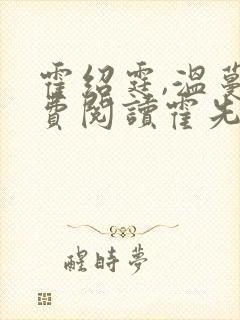 霍紹霆,溫蔓
費閱讀霍先
醒時夢